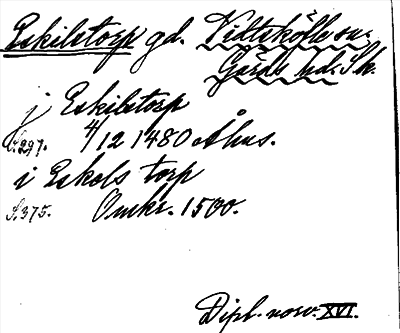 Eskilstorp gd. Vittskölle sn.
Gärds hd. Sk.
j Eskilstorp
S. 297. 4/12 1480 Åhus.
i Eskols torp
S. 375. Omkr. 1500.
Dipl. norv. XVI.